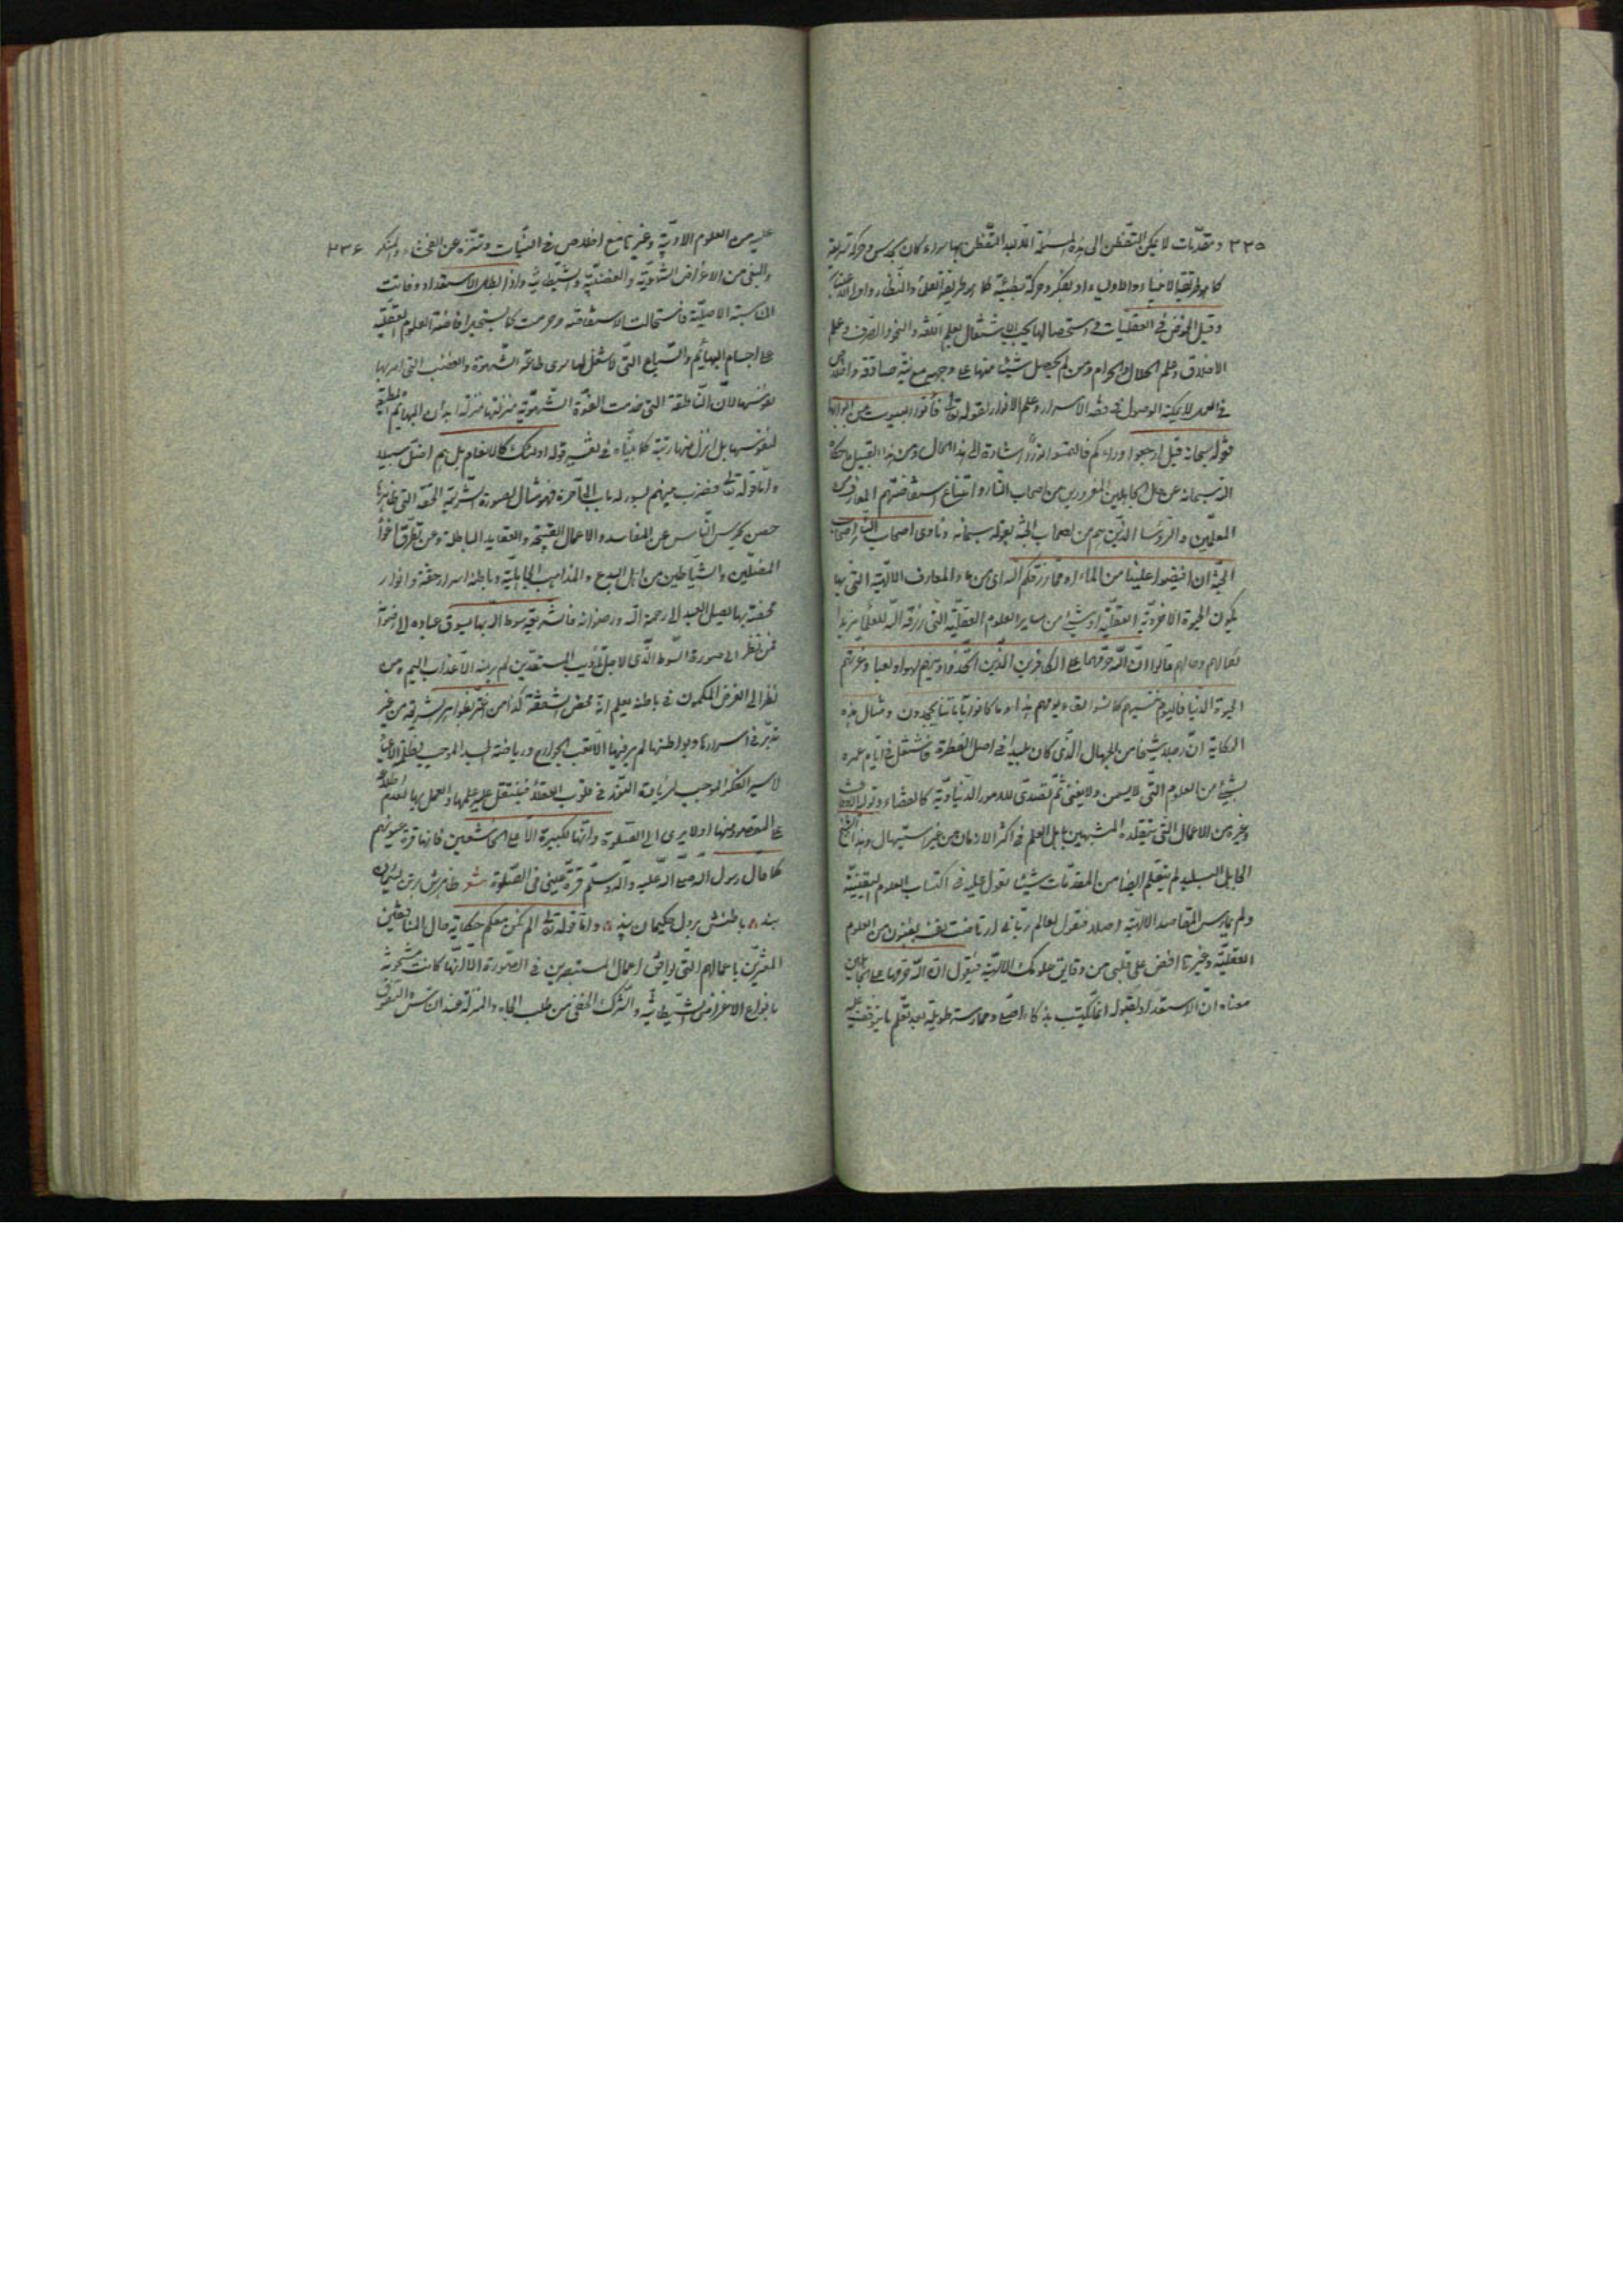 ٢٣٥ ومقدّمات لا يمكن التفطّن الى هذه المسئلة الا بعد التفطّن بها سواء كان بحدس وحركة سريعة
كما هو طريقة الانبياء والاولياء او بفكر وحركة بطيئة كما هو طريقة العلماء والنظّار
وقبل الخوض فى العقليات واستحصالها يجب الاشتغال بعلم اللغة والنحو والصّرف وعلم
الاخلاق وعلم الحلال والحرام ومن لم يحصل شيئا منها على وجهه مع نيّة صادقة واخلاص
فى العمل لا يمكنه الوصول الى فقه الاسرار وعلم الانوار لقوله تعالى فأتوا البيوت من ابوابها
قوله سبحانه قيل ارجعوا وراءكم فالتمسوا نورا اشارة الى هذا الحال ومن هذا القبيل ما حكاه
الله سبحانه عن حال الجاهلين المغرورين من اصحاب النّار وامتناع استفاضتهم المعارف من
المعلّمين والرّؤسا الذين هم من اصحاب الجنّة بقوله سبحانه ونادى اصحاب النار اصحاب
الجنّة ان افيضوا علينا من الماء او ممّا رزقكم الله اى من ماء المعارف الالهيّة التى بها
يكون الحيوة الاخرويّة العقليّة او شئ من ساير العلوم العقليّة التى رزقه الله للعلماء
قالوا انّ الله حرّمهما على الكافرين الذين اتّخذوا دينهم لهوا ولعبا وغرّتهم
الحيوة الدنيا فاليوم ننسيهم كما نسوا لقاء يومهم هذا وما كانوا بآياتنا يجحدون ومثال هذه
الحكاية انّ رجلا شيخا من الجهال الّذى كان بليدا فى اصل الفطرة فاشتغل فى ايّام عمره
بشئ من العلوم التّى لا يسمن ولا يغنى ثم تصدّى للامور الدّنياويّة كالقضاء وتولية الاوقاف
وغيره من الاعمال التى يتقلده المشبهين باهل العلم فى اكثر الازمان من غير استيهال وهذا الشيخ
الجاهل البليد لم يتعلم ايضا من المقدّمات شيئا يعول عليه فى اكتساب العلوم اليقينيّة
ولم يمارس المقاصد الالهيّة اصلا فيقول لعالم ربّانى ارتاضت نفسه بفنون من العلوم
العقليّة وغيرها افض على قلبى من دقايق علومك الالهيّة فيقول انّ الله حرّمها على الجاهلين
معناه انّ الاستعداد لقبوله انّما يكتسب بذكاء اصلى وممارسة طويلة بعد تعلّم ما يتوقف عليه
عليه من العلوم الادبيّة وغيرها مع اخلاص فى النيّات وتنزّه عن الفحشاء والمنكر ٢٣٦
والبغى من الاغراض الشهويّة والغضبيّة والشيطانيّة واذا بطل الاستعداد وفاتت
المناسبة الاصليّة فاستحالت الاستفاضة وحرمت كما يستحيل افاضة العلوم العقليّة
على اجسام البهائم والسّباع التّى لا شغل لها سوى طاعة الشّهوة والغضب التى امر بها
نفوسها لانّ النّاطقة التى خدمت القوّة الشّهويّة منزلتها منزلة ابدان البهائم المطيعة
لنفوسها بل انزل منها رتبة كما بيّناه فى تفسير قوله اولئك كالانعام بل هم اضلّ سبيلا
وامّا قوله تعالى فضرب بينهم بسور له باب الى آخره فهو مثال لصورة الشّريعة الحقّة التى ظاهرها
حصن يحرس النّاس عن المفاسد والاعمال القبيحة والعقايد الباطلة وعن تطرّق اغواء
المضلّين والشّياطين من اهل البدع والمذاهب الجاهليّة وباطنه اسرار حقّة وانوار
محضة بها يصل العبد الى رحمة الله ورضوانه فالشريعة سوط الله بها يسوق عباده الى رضوانه
فمن نظر الى صورة السّوط الّذى لاجل تأديب المستعدّين لم ير منه الّا عذاب اليم ومن
نظر الى الغرض المكمون فى باطنه يعلم انّه محض الشفقة كذا من اغترّ بظواهر الشريعة من غير
تدبّر فى اسرارها وبواطنها لم ير فيها الّا تعب الجوارح ورياضة البدن الموجب
لاسير الفكر الموجب لزيادة النّور فى قلوب العقلاء فيثقل عليه علمها والعمل بها لعدم اطلاعه
على المقصود منها اولا يرى الى الصّلوة وانّها لكبيرة الّا على الخاشعين فانها قرة عيونهم
كما قال رسول الله صلى الله عليه وآله وسلّم قرّة عينى فى الصّلوة شعر
بند ٨ باطنش بر دل حكيمان پند ٨ وامّا قوله تعالى الم نكن معكم حكاية حال المنافقين
المغترّين باعمالهم التى يوافق اعمال المستبصرين فى الصّورة الا انّها كانت مشحونة
بانواع الاغراض الشّيطانيّة والشّرك الخفى من طلب الجاه والمنزلة عند النّاس والتفوق